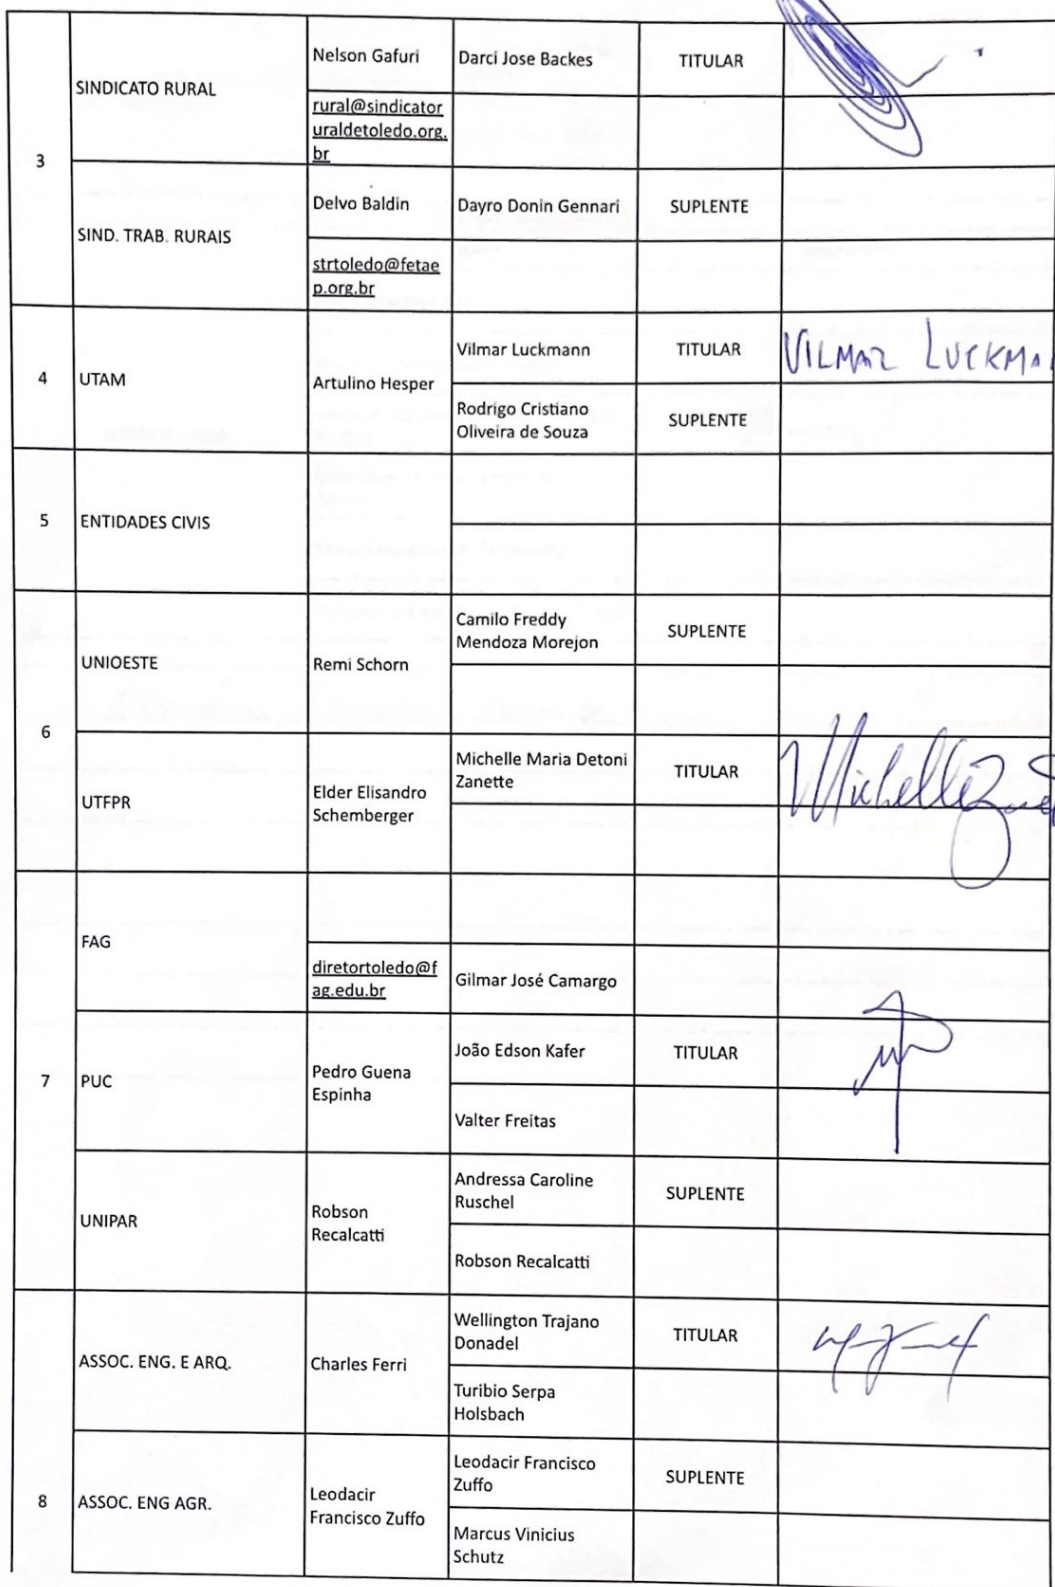 3
SINDICATO RURAL
Nelson Gafuri
Darci Jose Backes
TITULAR
rural@sindicator
uraldetoledo.org.
br
SIND. TRAB. RURAIS
Delvo Baldin
Dayro Donin Gennari
SUPLENTE
strtoledo@fetae
p.org.br
4
UTAM
Artulino Hesper
Vilmar Luckmann
TITULAR
VILMAR LUCKMA
Rodrigo Cristiano
Oliveira de Souza
SUPLENTE
5
ENTIDADES CIVIS
6
UNIOESTE
Remi Schorn
Camilo Freddy
Mendoza Morejon
SUPLENTE
UTFPR
Elder Elisandro
Schemberger
Michelle Maria Detoni
Zanette
TITULAR
Michelle
7
FAG
diretortoledo@f
ag.edu.br
Gilmar José Camargo
PUC
Pedro Guena
Espinha
João Edson Kafer
TITULAR
Valter Freitas
UNIPAR
Robson
Recalcatti
Andressa Caroline
Ruschel
SUPLENTE
Robson Recalcatti
8
ASSOC. ENG. E ARQ.
Charles Ferri
Wellington Trajano
Donadel
TITULAR
Turibio Serpa
Holsbach
ASSOC. ENG AGR.
Leodacir
Francisco Zuffo
Leodacir Francisco
Zuffo
SUPLENTE
Marcus Vinicius
Schutz